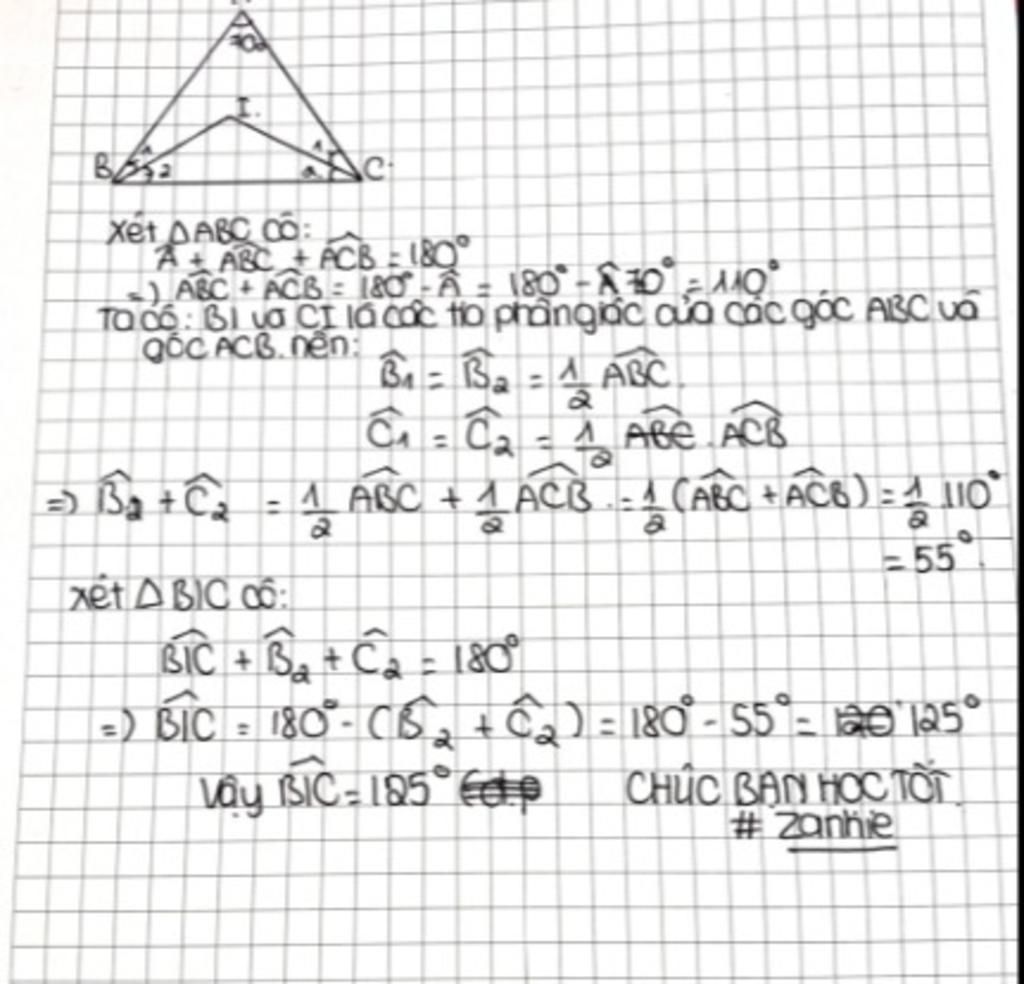 70°
I.
B 1 2
1 2 C.
xét △ABC có:
Â + ABC + ACB = 180°
=) ABC + ACB = 180° - Â = 180° - 70° = 110°
Ta có: BI và CI là các tia phân giác của các góc ABC và
góc ACB. nên:
B̂₁ = B̂₂ = 1/2 ABC.
Ĉ₁ = Ĉ₂ = 1/2 ACB
=) B̂₂ + Ĉ₂ = 1/2 ABC + 1/2 ACB = 1/2 (ABC + ACB) = 1/2 .110°
= 55°.
xét △BIC có:
BIC + B̂₂ + Ĉ₂ = 180°
=) BIC = 180° - (B̂₂ + Ĉ₂) = 180° - 55° = 125°
Vậy BIC = 125°
CHÚC BẠN HỌC TỐT.
# zanhie